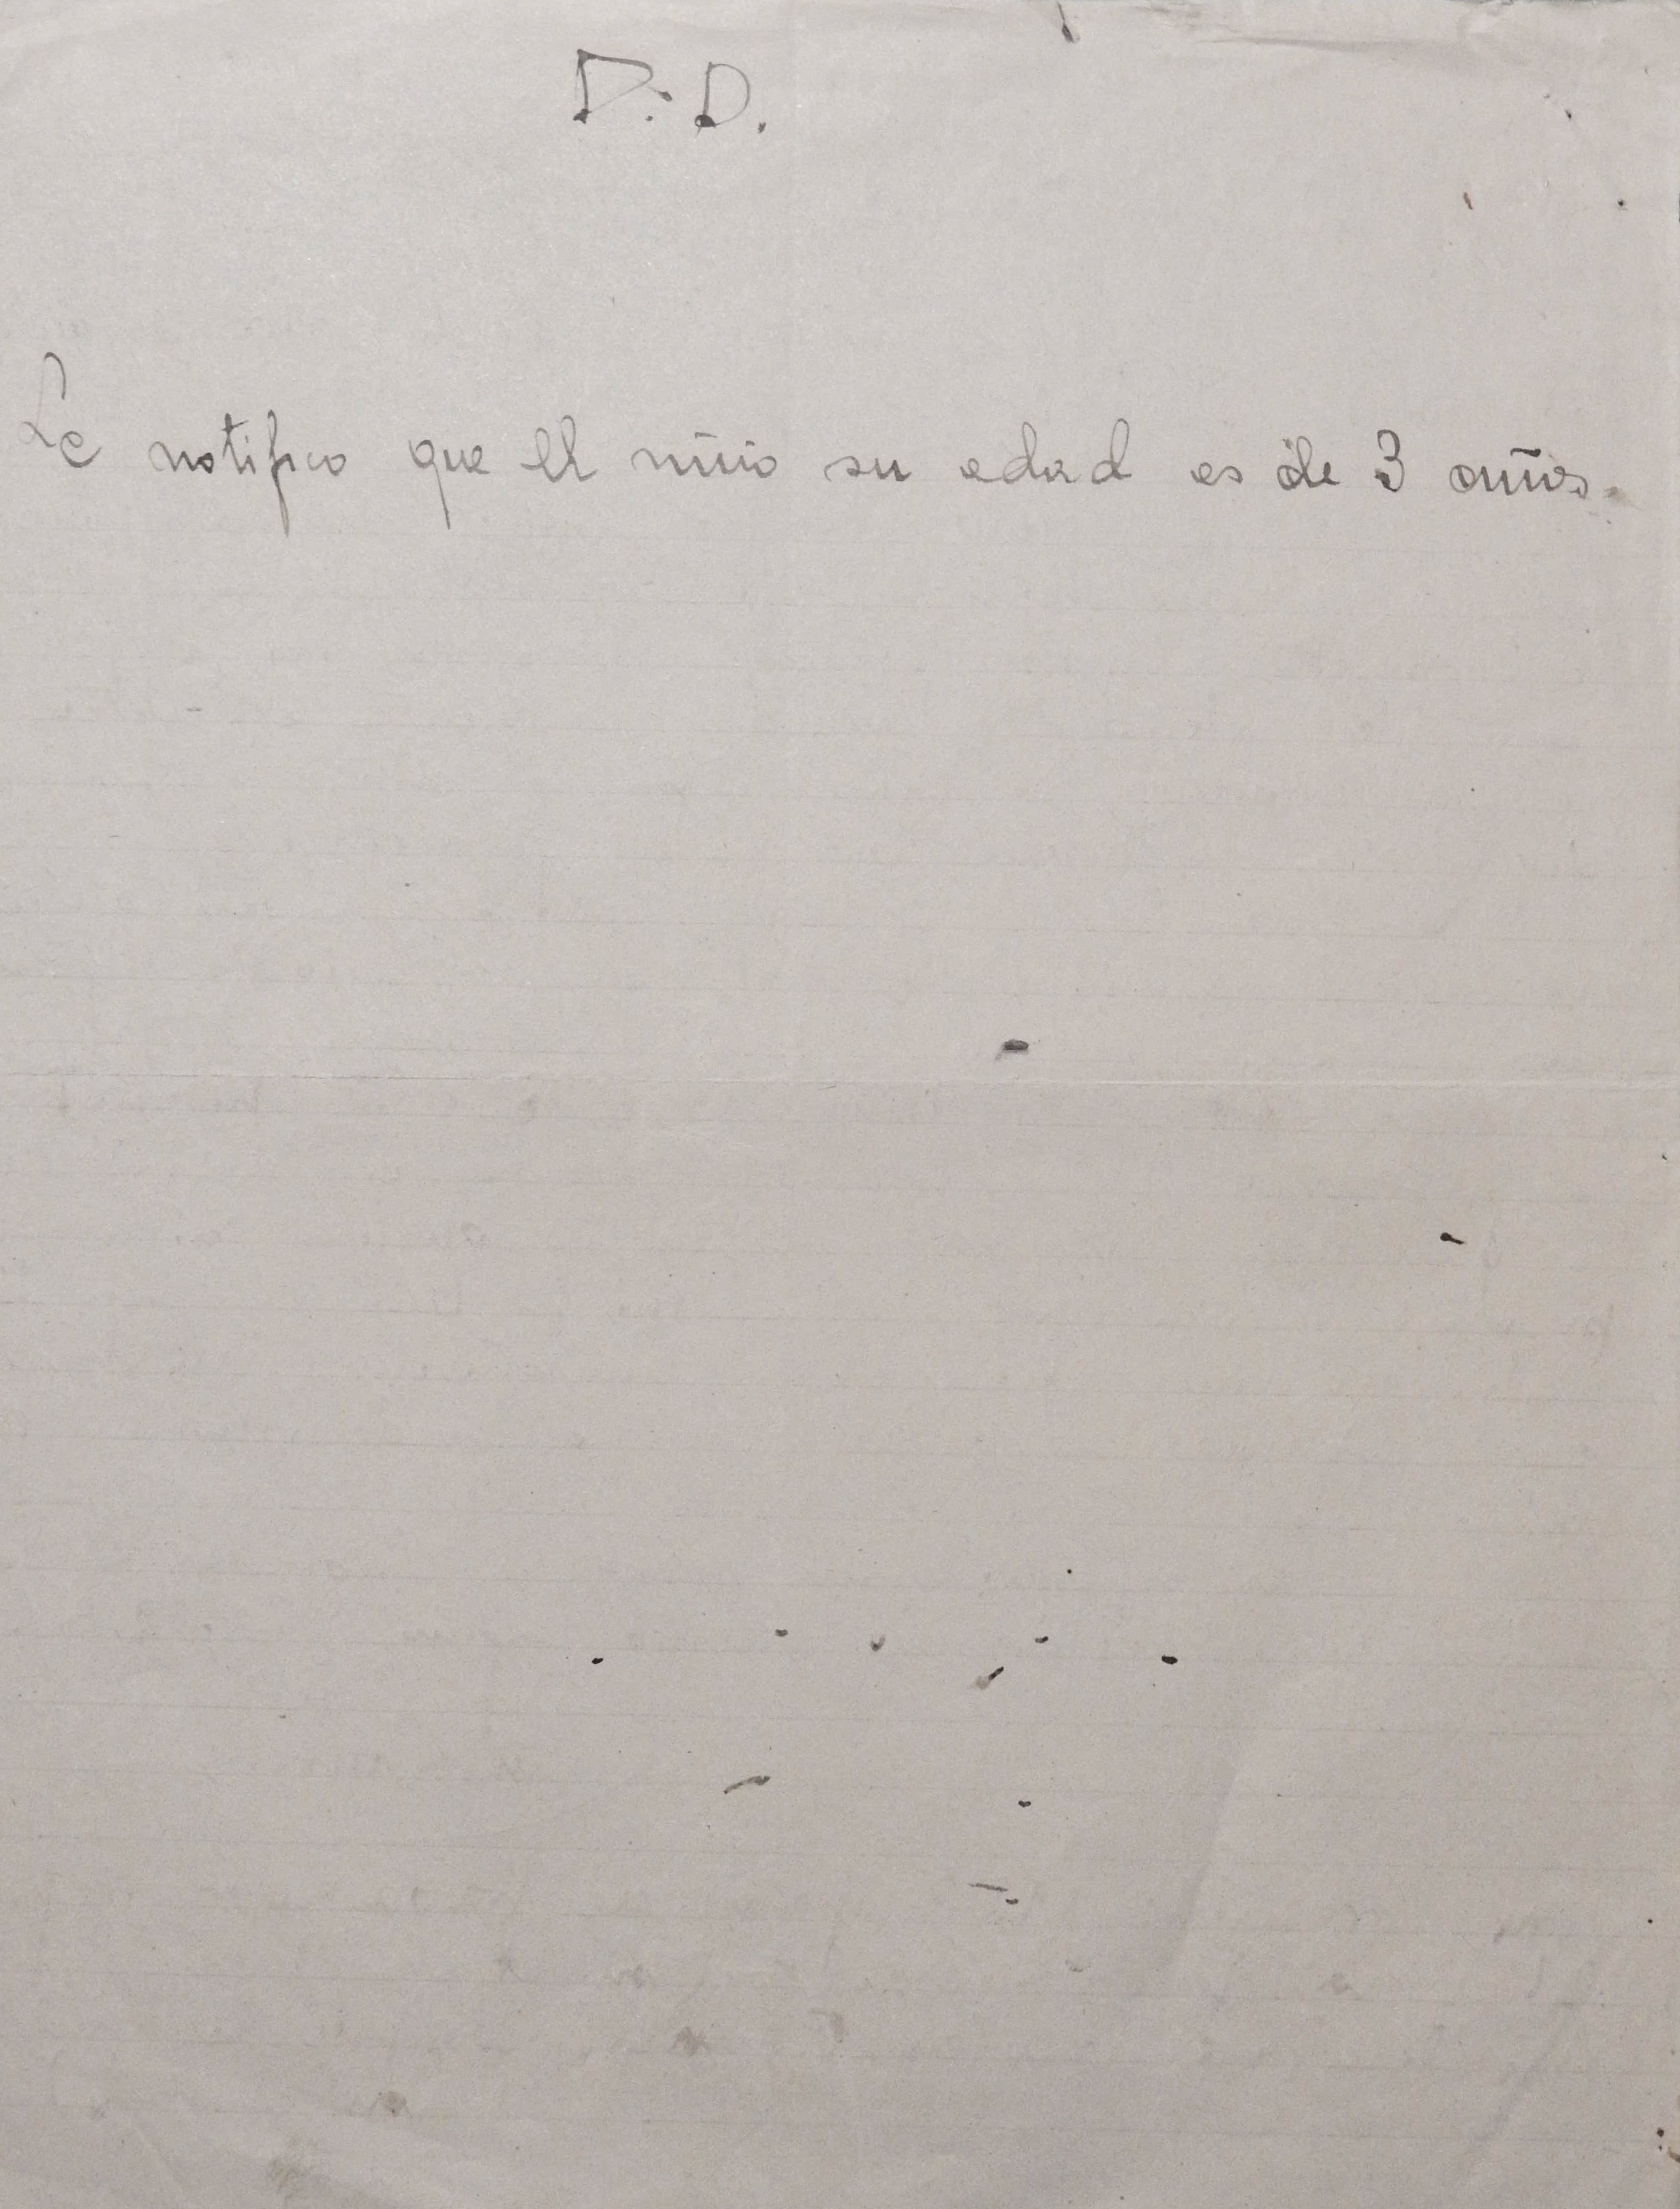 D. D.
Le notifico que el niño su edad es de 3 años.